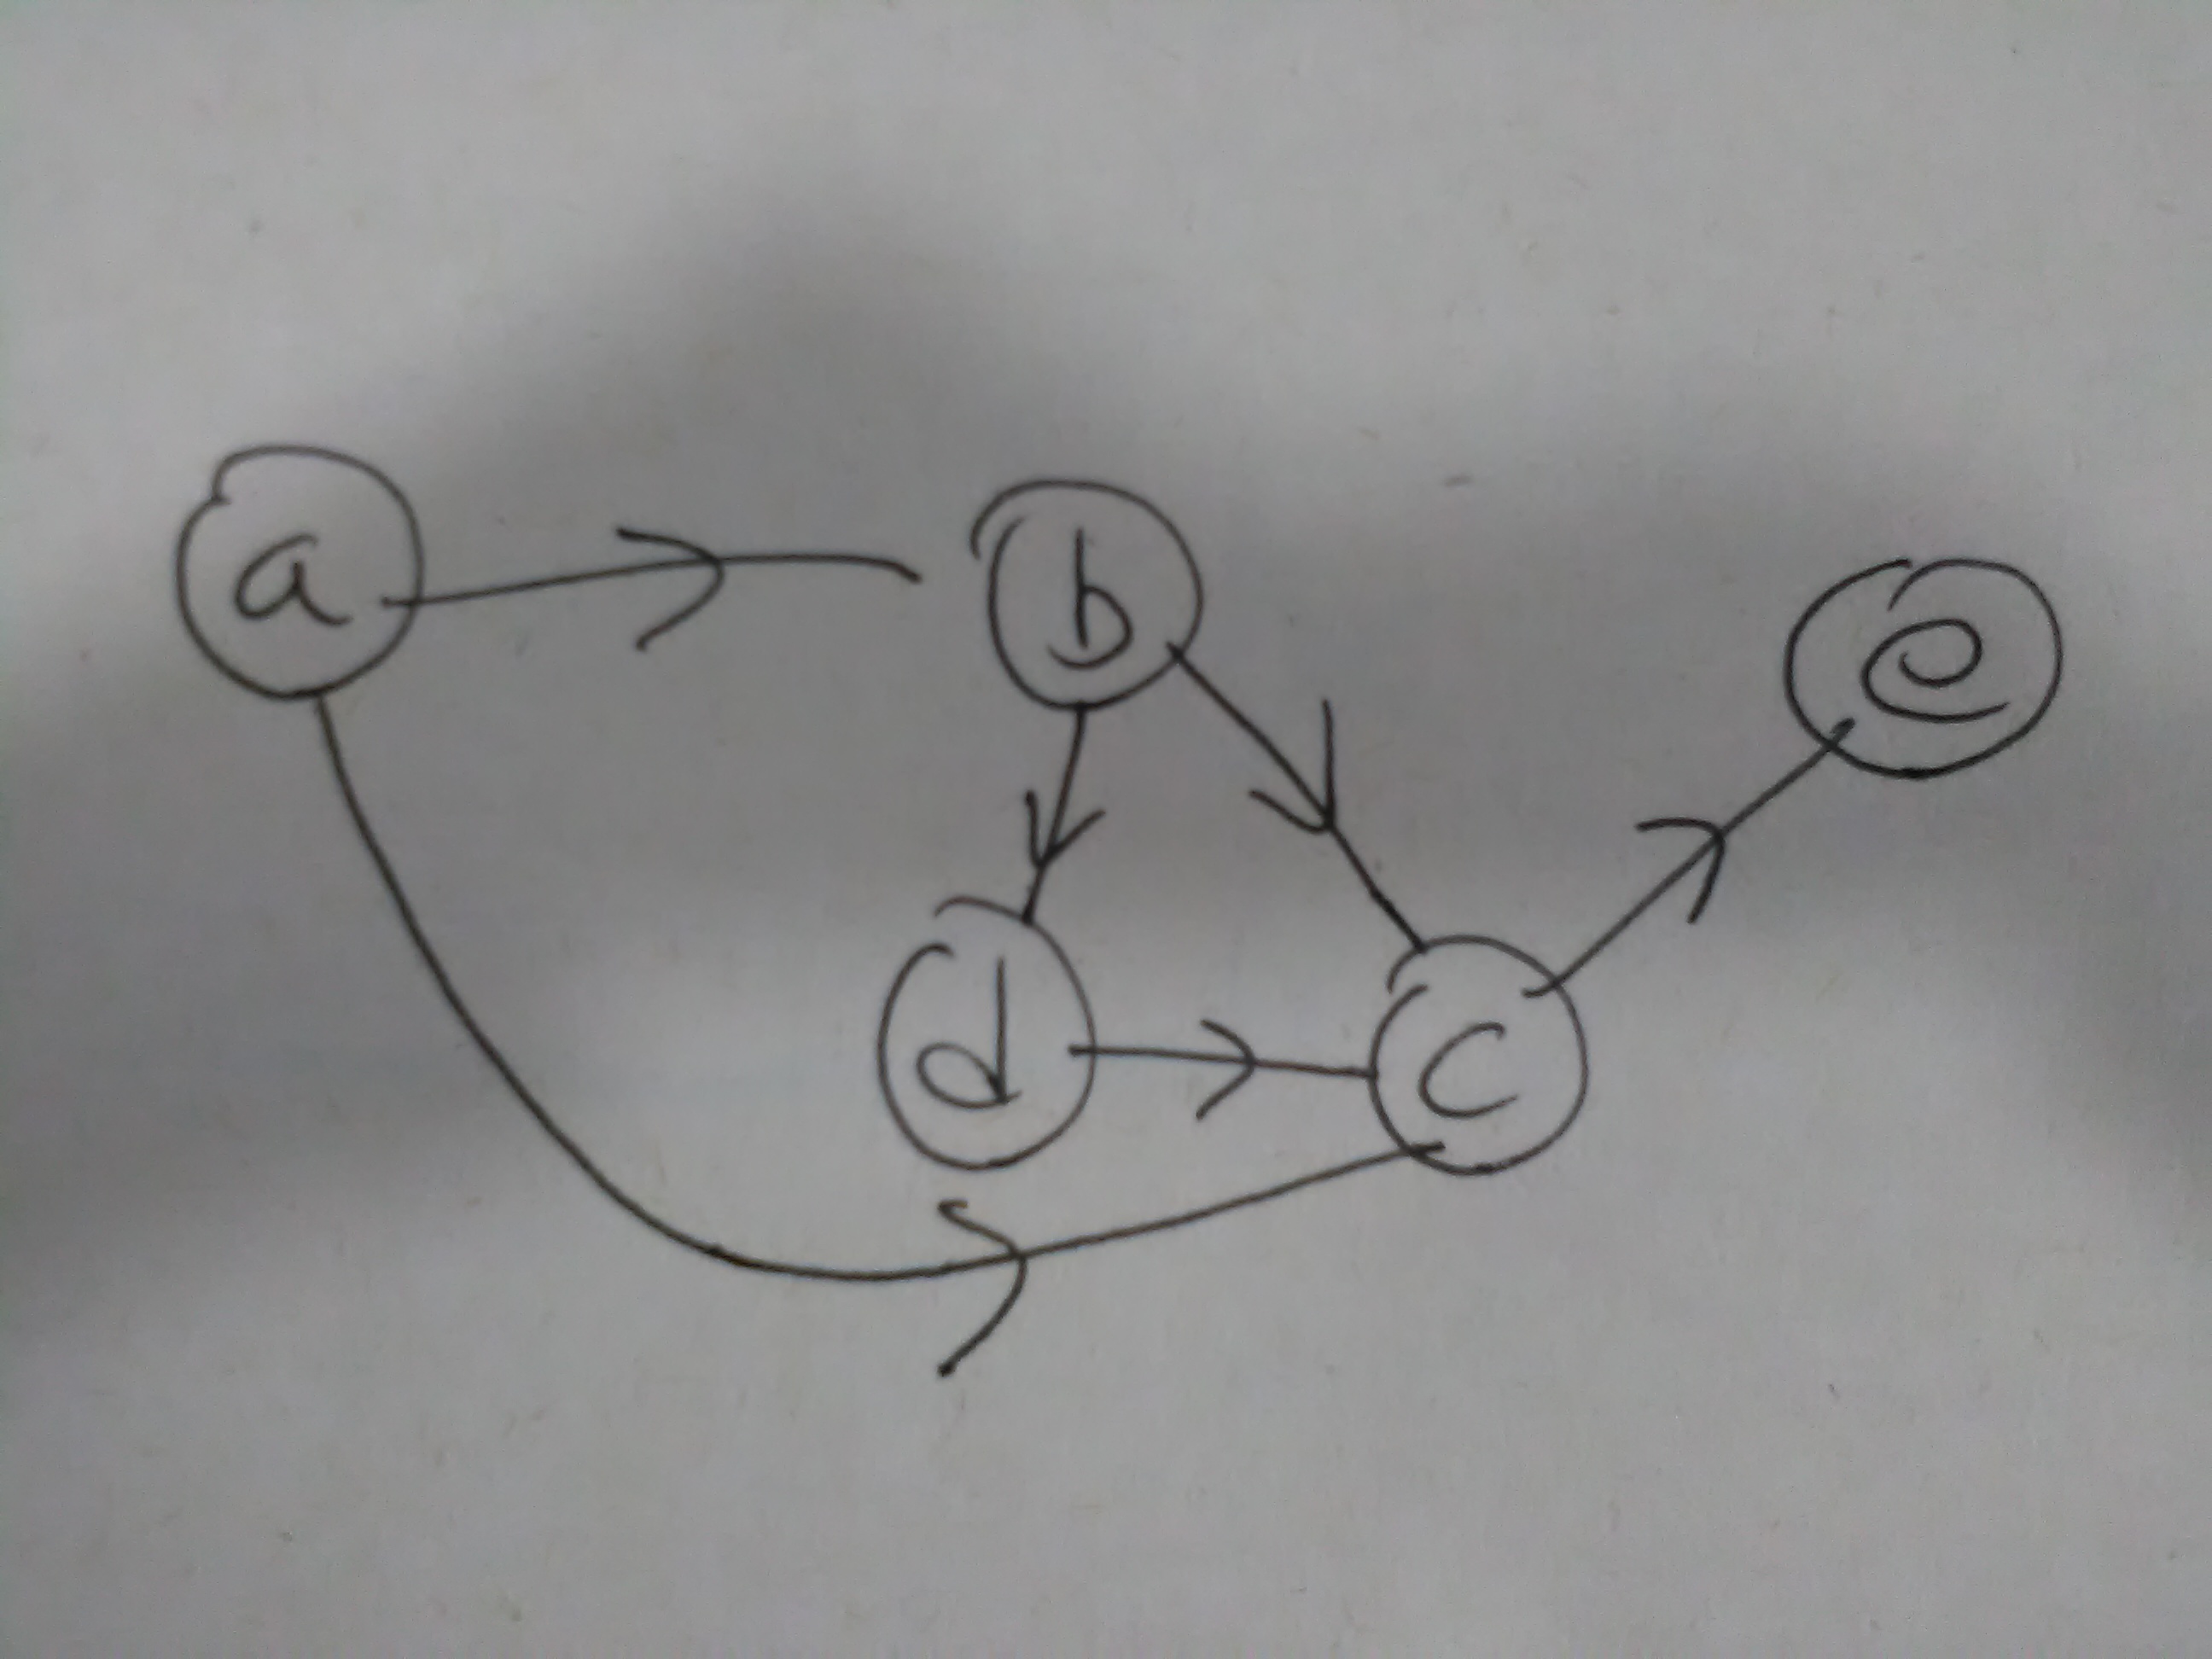 a
b
e
d
c